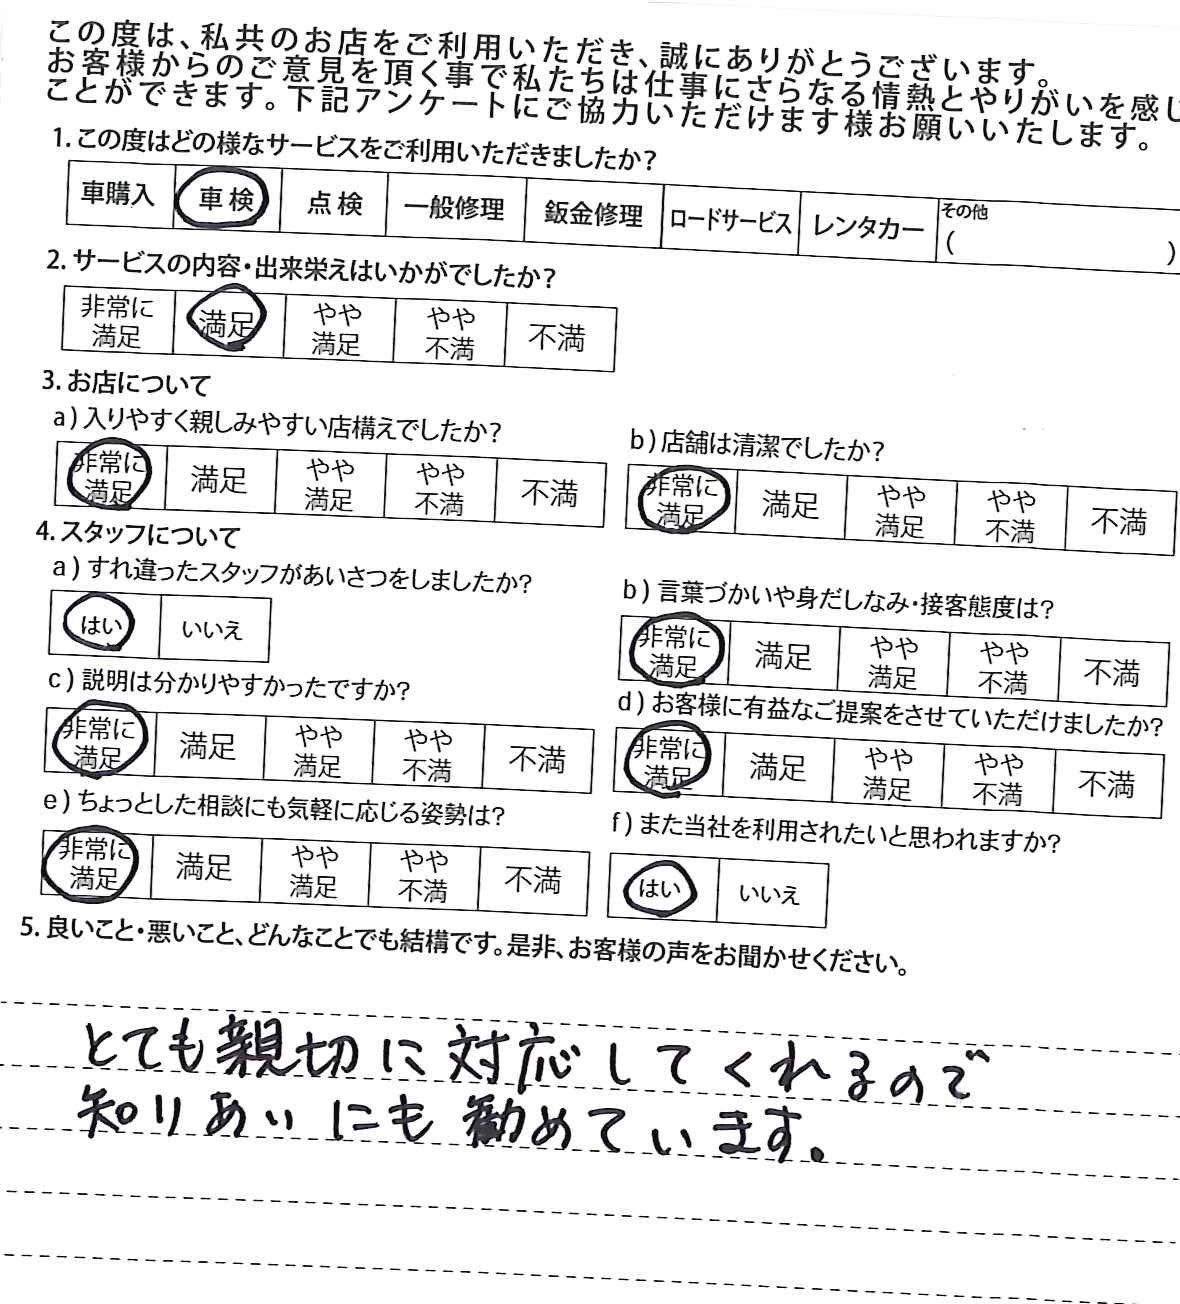 この度は、私共のお店をご利用いただき、誠にありがとうございます。
お客様からのご意見を頂く事で私たちは仕事にさらなる情熱とやりがいを感じ
ことができます。下記アンケートにご協力いただけます様お願いいたします。
1.この度はどの様なサービスをご利用いただきましたか?
車購入 車検 点検 一般修理 鈑金修理 ロードサービス レンタカー その他 ( )
2.サービスの内容・出来栄えはいかがでしたか?
非常に満足 満足 やや満足 やや不満 不満
3.お店について
a)入りやすく親しみやすい店構えでしたか?
非常に満足 満足 やや満足 やや不満 不満
b)店舗は清潔でしたか?
非常に満足 満足 やや満足 やや不満 不満
4.スタッフについて
a)すれ違ったスタッフがあいさつをしましたか?
はい いいえ
b)言葉づかいや身だしなみ・接客態度は?
非常に満足 満足 やや満足 やや不満 不満
c)説明は分かりやすかったですか?
非常に満足 満足 やや満足 やや不満 不満
d)お客様に有益なご提案をさせていただけましたか?
非常に満足 満足 やや満足 やや不満 不満
e)ちょっとした相談にも気軽に応じる姿勢は?
非常に満足 満足 やや満足 やや不満 不満
f)また当社を利用されたいと思われますか?
はい いいえ
5.良いこと・悪いこと、どんなことでも結構です。是非、お客様の声をお聞かせください。
とても親切に対応してくれるので
知りあいにも勧めています。